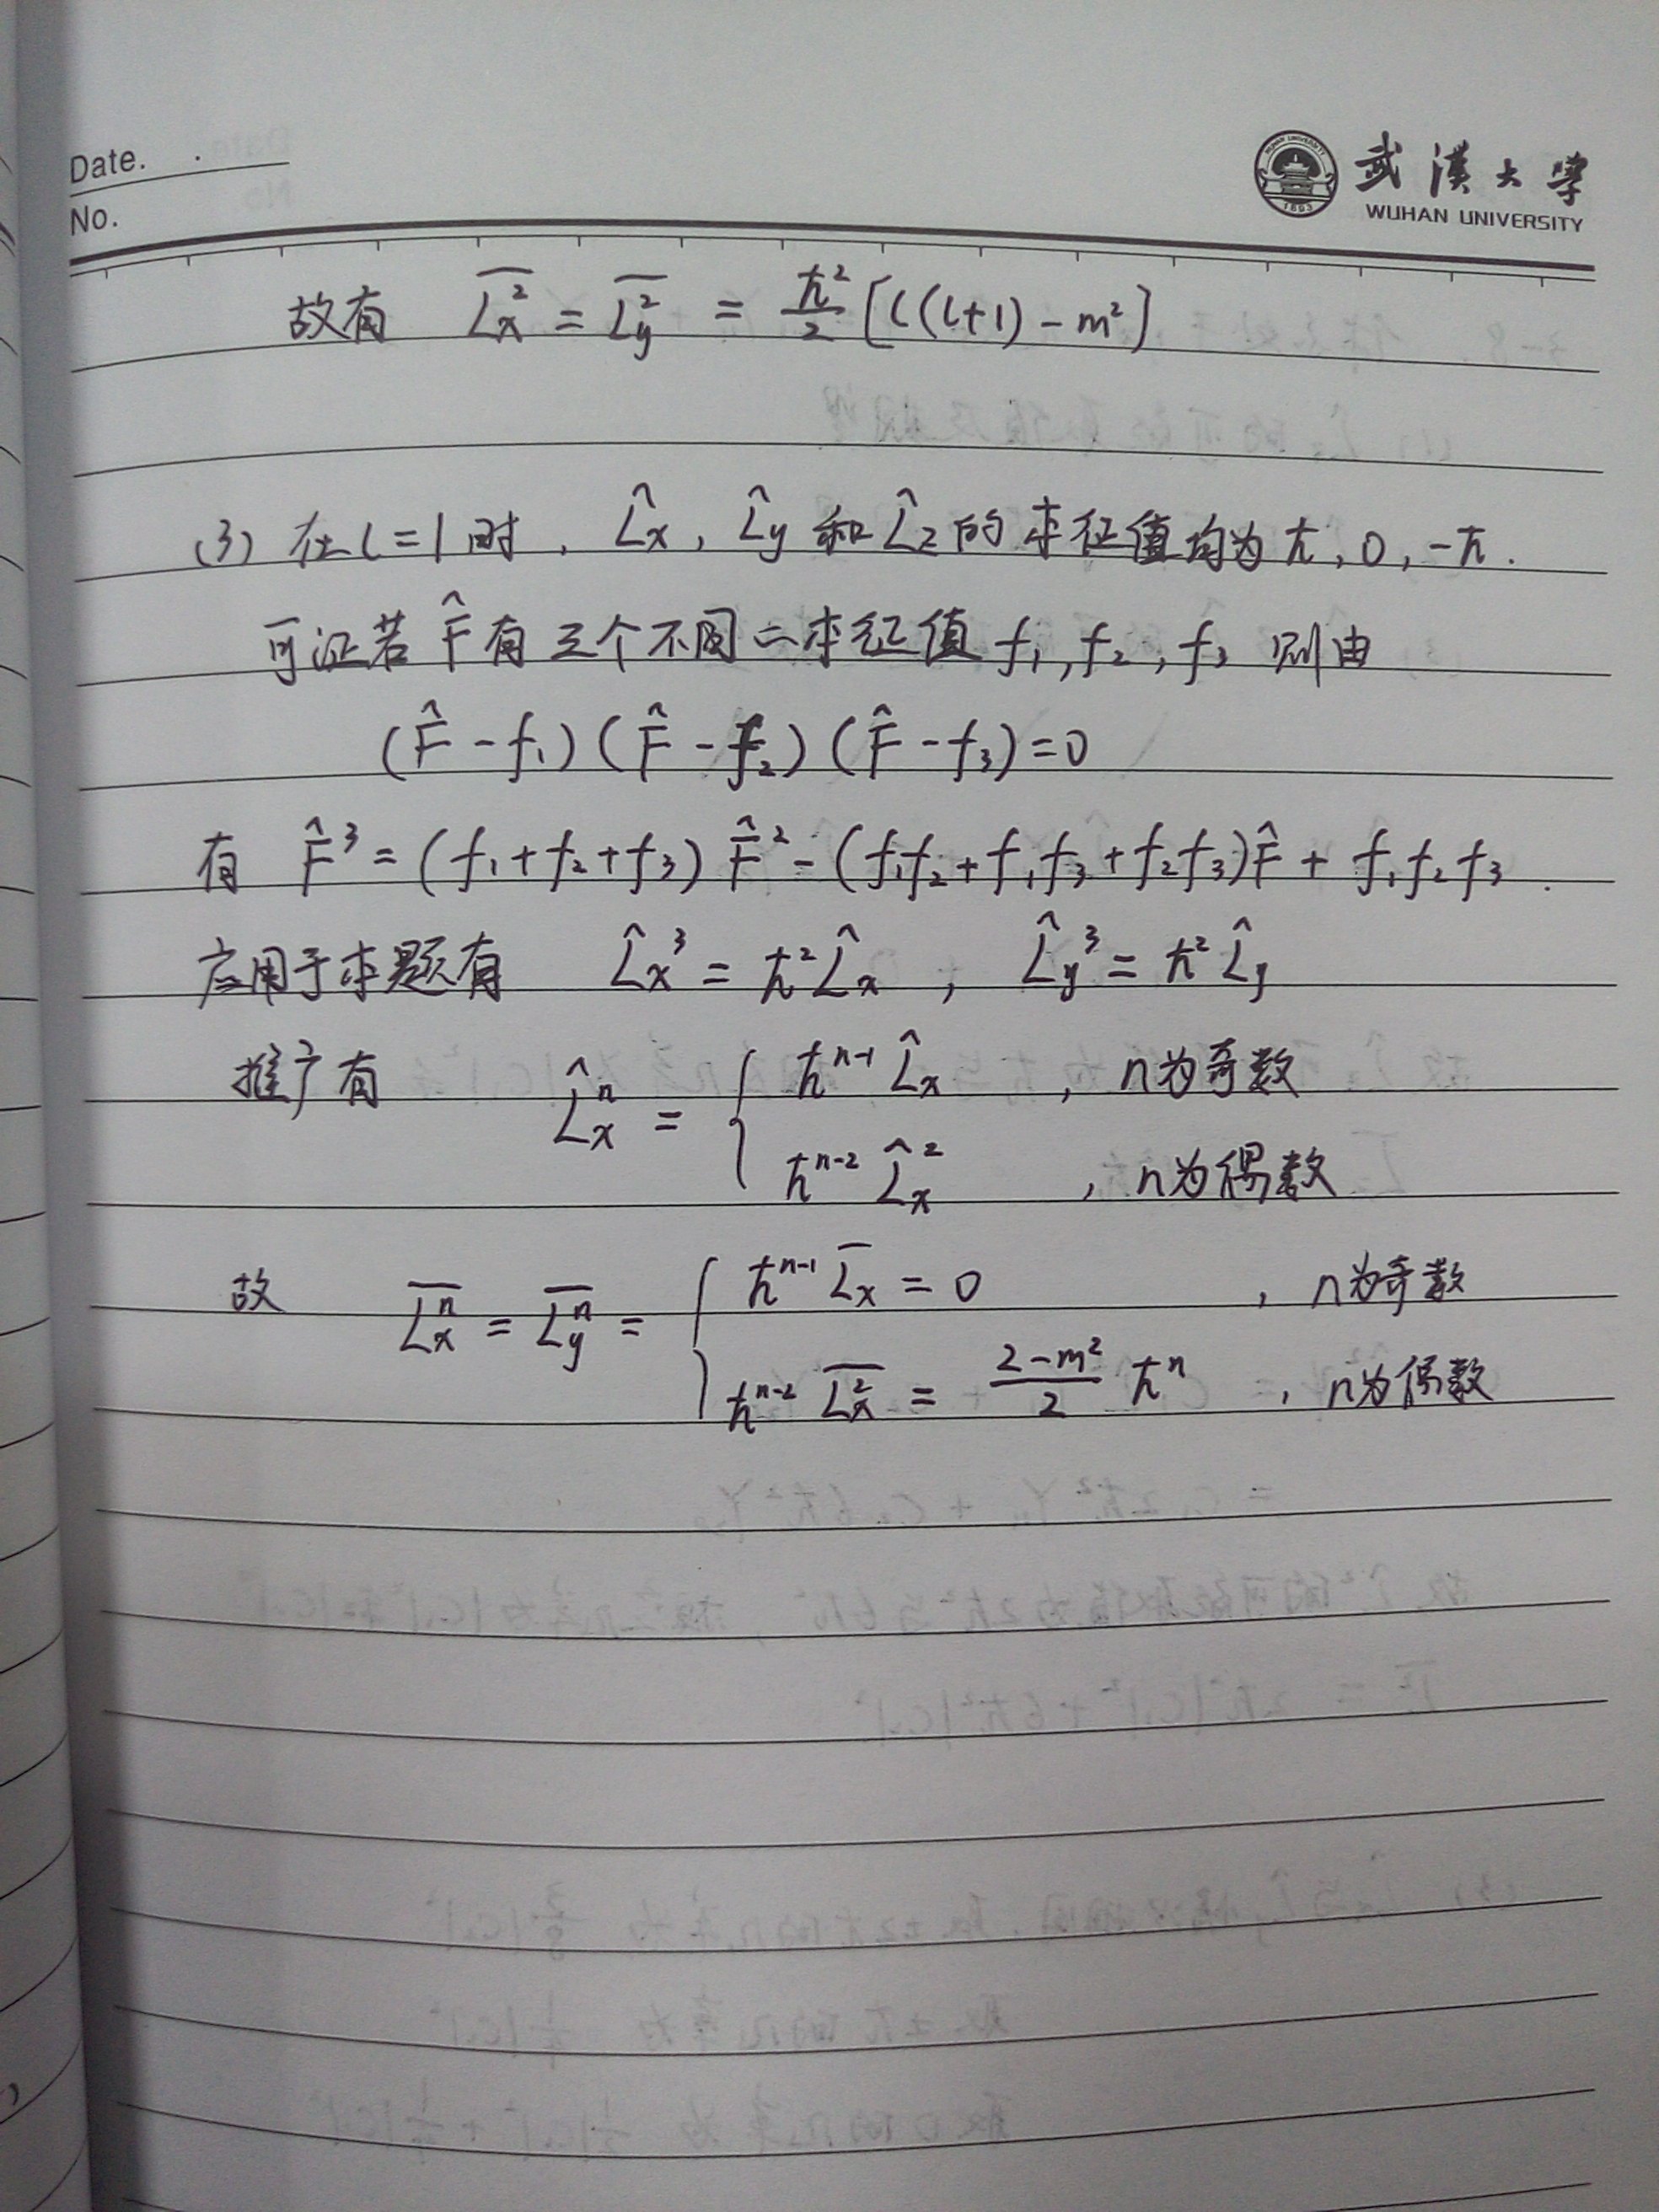 Date. .
No.
武漢大學
WUHAN UNIVERSITY
1893
故有 $\overline{L_x^2} = \overline{L_y^2} = \frac{\hbar^2}{2}[l(l+1)-m^2]$
(3) 在 l=1 时, $\hat{L}_x$, $\hat{L}_y$ 和 $\hat{L}_z$ 的本征值均为 ħ, 0, -ħ.
可证若 $\hat{F}$ 有三个不同的本征值 $f_1, f_2, f_3$ 则由
$(\hat{F}-f_1)(\hat{F}-f_2)(\hat{F}-f_3)=0$
有 $\hat{F}^3=(f_1+f_2+f_3)\hat{F}^2-(f_1f_2+f_1f_3+f_2f_3)\hat{F}+f_1f_2f_3$.
应用于本题有 $\hat{L}_x^3=\hbar^2\hat{L}_x$, $\hat{L}_y^3=\hbar^2\hat{L}_y$
推广有 $\hat{L}_x^n = \begin{cases} \hbar^{n-1}\hat{L}_x, & n为奇数 \\ \hbar^{n-2}\hat{L}_x^2, & n为偶数 \end{cases}$
故 $\overline{L_x^n}=\overline{L_y^n}=\begin{cases} \hbar^{n-1}\overline{L_x}=0, & n为奇数 \\ \hbar^{n-2}\overline{L_x^2}=\frac{2-m^2}{2}\hbar^n, & n为偶数 \end{cases}$